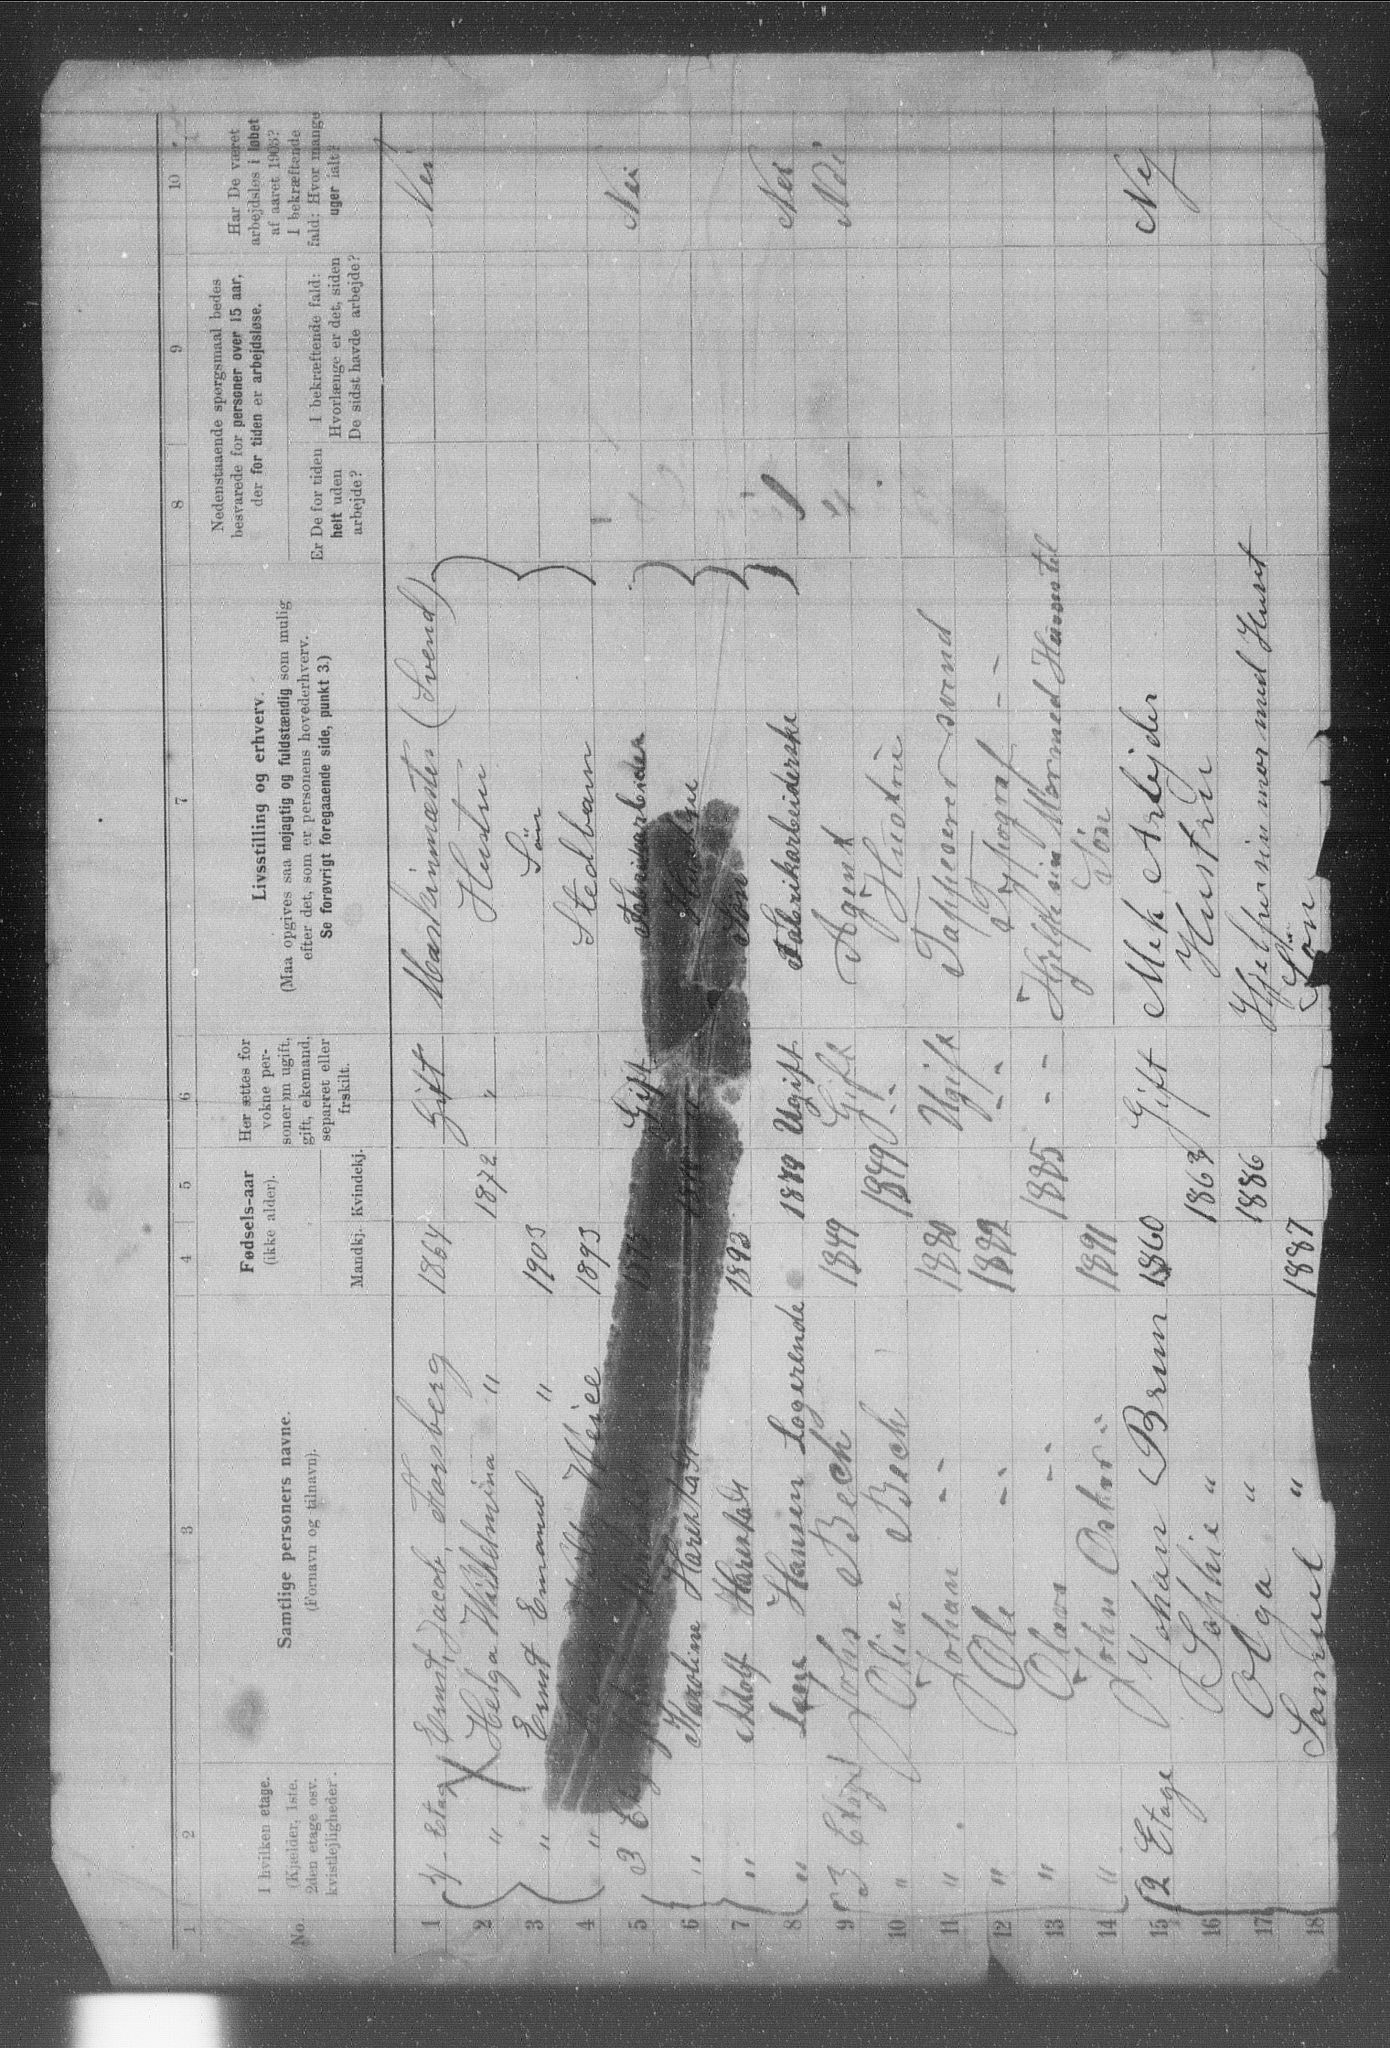 1 2 3 4 5 6 7 8 9 10
No.
I hvilken etage.
(Kjælder, 1ste,
2den etage osv.
kvistlejligheder.
Samtlige personers navne.
(Fornavn og tilnavn).
Fødsels-aar
(ikke alder).
Mandkj. Kvindekj.
Her sættes for
voksne per-
soner om ugift,
gift, ekemand,
separret eller
frskilt.
Livsstilling og erhverv.
(Maa opgives saa nøjagtig og fuldstændig som mulig
efter det, som er personens hovederhverv.
Se forøvrigt foregaaende side, punkt 3.)
Nedenstaaende spørgsmaal bedes
besvarede for personer over 15 aar,
der for tiden er arbejdsløse.
Er De for tiden
helt uden
arbejde?
I bekræftende fald:
Hvorlænge er det, siden
De sidst havde arbejde?
Har De været
arbejdsløs i løbet
af aaret 1903?
I bekræftende
fald: Hvor mange
uger ialt?
1 Etag Jacob 1864 Gift (Svend) Nei
2 " Helga Wilhelmina " 1872 " Hustru
3 " Ernst Emanuel " 1903 Søn
4 " 1893 Stedbarn
5 3 Gift Fabrikarbeider Nei
6 " Karoline Harestad
7 " Adolf Harestad 1893 Søn
8 " Hansen Logerende Ugift Fabrikarbeiderske Nei
9 3 Etage Johs Bech 1849 Gift Agent Nei
10 " Oline Bech 1849 -"- Hustru
11 " Johan -"- 1880 Ugift Tappeserer svend
12 " Ole -"- 1882 -"- Typograf -"-
13 " -"- 1885 -"-
14 " John Oskar " 1891 Søn
15 2 Etage Johan Brun 1860 Gift Mek Arbejder Nej
16 Sophie " 1863 Hustru
17 Olga " 1886 Hjelper sin mor med Huset
18 Samuel " 1887 Søn